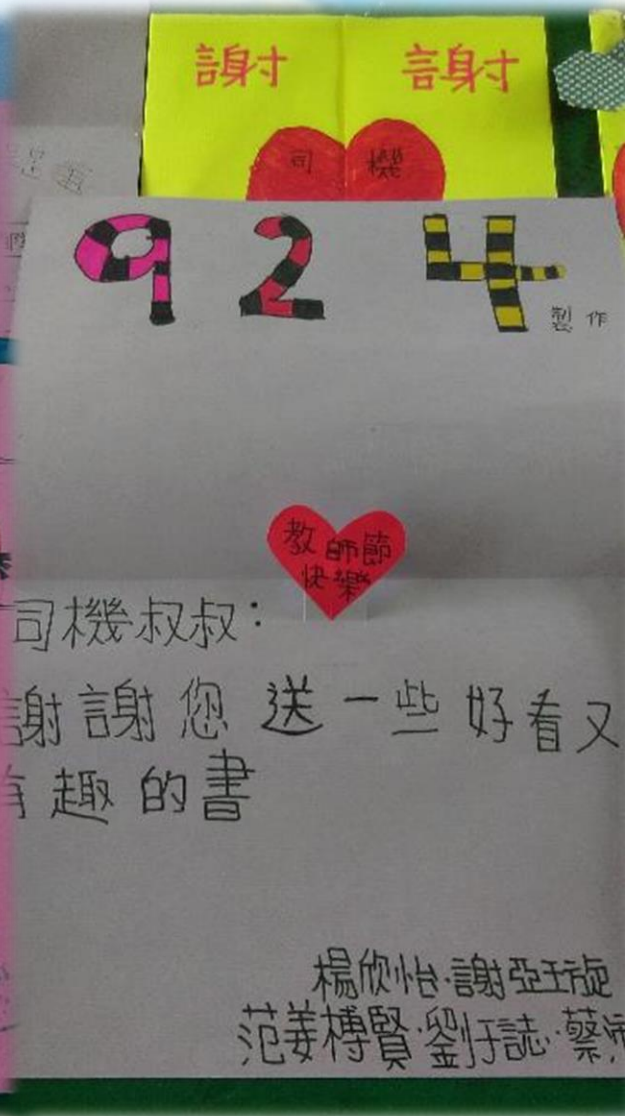 謝 謝
司 機
924
製作
教師節
快樂
司機叔叔：
謝謝您送一些好看又
有趣的書
楊欣怡·謝亞玨旋
范姜榑賢·劉于誌·蔡